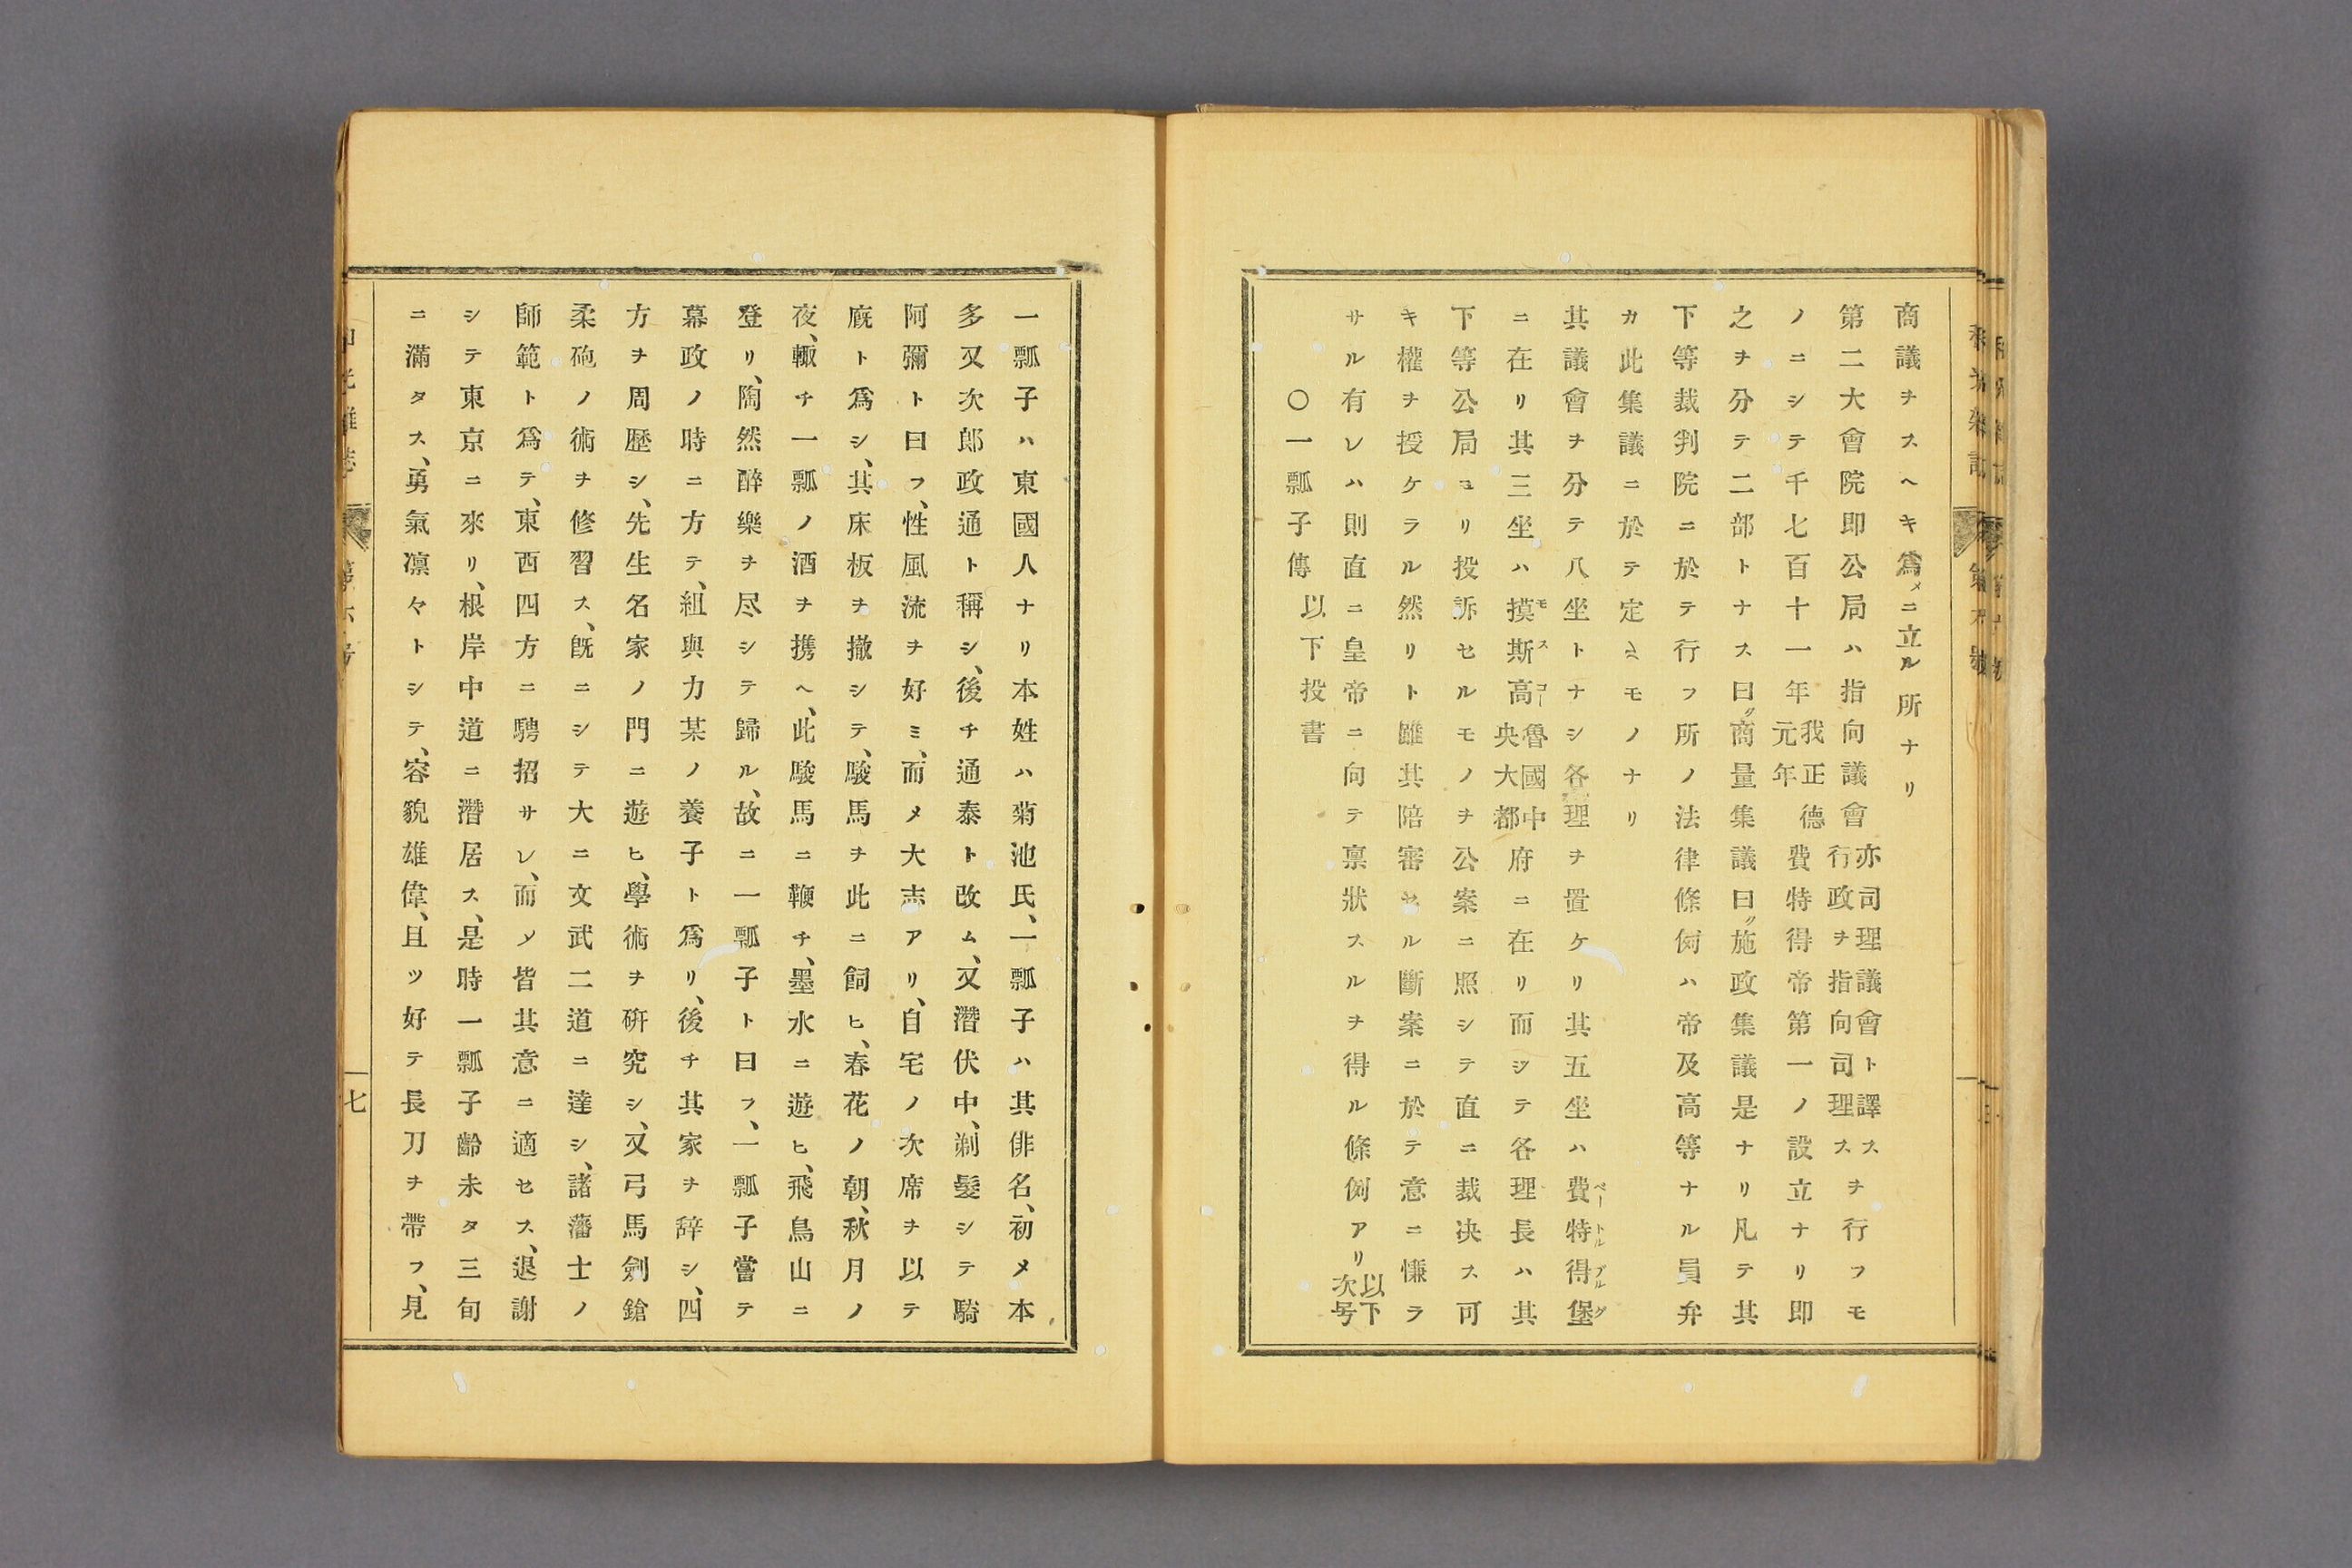 商議ヲスヘキ爲メニ立ル所ナリ
第二大會院即公局ハ指向議會亦司理議會ト譯ス行政ヲ指向司理スヲ行フモ
ノニシテ千七百十一年我正德元年費特得帝第一ノ設立ナリ即
之ヲ分テ二部トナス曰ク商量集議曰ク施政集議是ナリ凡テ其
下等裁判院ニ於テ行フ所ノ法律條例ハ帝及高等ナル員弁
カ此集議ニ於テ定ムモノナリ
其議會ヲ分テ八坐トナシ各理ヲ置ケリ其五坐ハ費特得堡ペートルブルグ
ニ在リ其三坐ハ摸斯高モスコー魯國中央大都府ニ在リ而シテ各理長ハ其
下等公局ヨリ投訴セルモノヲ公案ニ照シテ直ニ裁决ス可
キ權ヲ授ケラル然リト雖其陪審セル斷案ニ於テ意ニ慊ラ
サル有レハ則直ニ皇帝ニ向テ禀狀スルヲ得ル條例アリ以下次号
〇一瓢子傳　以下投書
一瓢子ハ東國人ナリ本姓ハ菊池氏、一瓢子ハ其俳名、初メ本
多又次郎政通ト稱シ、後チ通泰ト改ム、又潛伏中、剃髮シテ騎
阿彌ト曰フ、性風流ヲ好ミ、而メ大志アリ、自宅ノ次席ヲ以テ
廐ト爲シ、其床板ヲ撤シテ、駿馬ヲ此ニ飼ヒ、春花ノ朝、秋月ノ
夜、輙チ一瓢ノ酒ヲ携ヘ、此駿馬ニ鞭チ、墨水ニ遊ヒ、飛鳥山ニ
登リ、陶然醉樂ヲ尽シテ歸ル、故ニ一瓢子ト曰フ、一瓢子嘗テ
幕政ノ時ニ方テ、組與力某ノ養子ト爲リ、後チ其家ヲ辞シ、四
方ヲ周歷シ、先生名家ノ門ニ遊ヒ、學術ヲ硏究シ、又弓馬劍鎗
柔砲ノ術ヲ修習ス、既ニシテ大ニ文武二道ニ達シ、諸藩士ノ
師範ト爲テ、東西四方ニ騁招サレ、而メ皆其意ニ適セス、退謝
シテ東京ニ來リ、根岸中道ニ潛居ス、是時一瓢子齡未タ三旬
ニ滿タス、勇氣凛々トシテ、容貌雄偉、且ツ好テ長刀ヲ帶フ、見
七